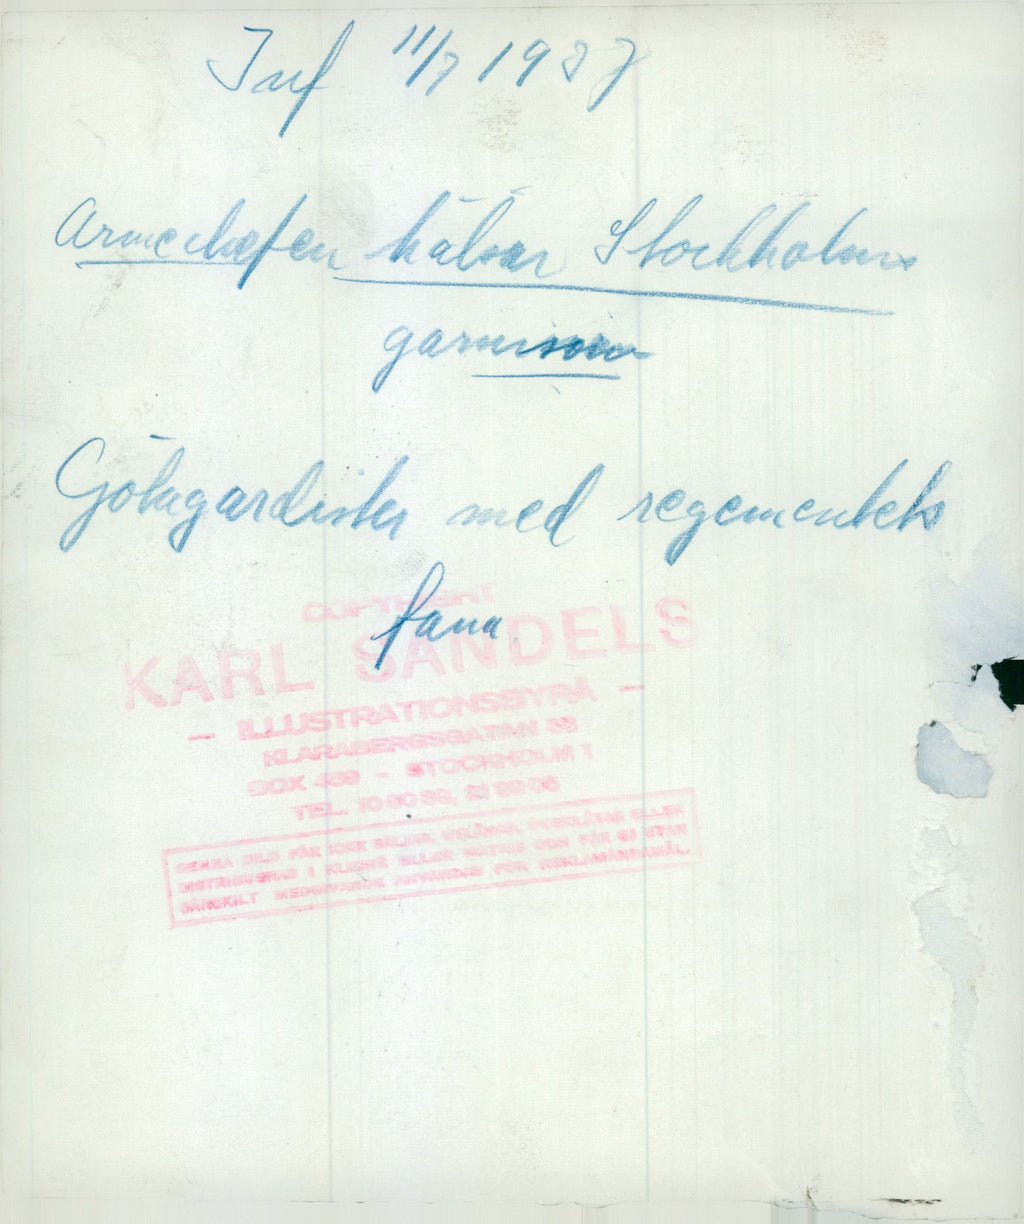 Inf 11/7 1937
Armechefen hälsar Stockholms
garnison
Götagardister med regementets
fana
COPYRIGHT
KARL SANDELS
— ILLUSTRATIONSBYRÅ —
KLARABERGSGATAN
BOX - STOCKHOLM 1
TEL.
DENNA BILD FÅR ICKE SÄLJAS, UTLÅNAS, ELLER
DISTRIBUERAS I KLICHÉ ELLER MATRIS OCH FÅR EJ UTAN
SÄRSKILT MEDGIVANDE ANVÄNDAS FÖR REKLAMÄNDAMÅL.